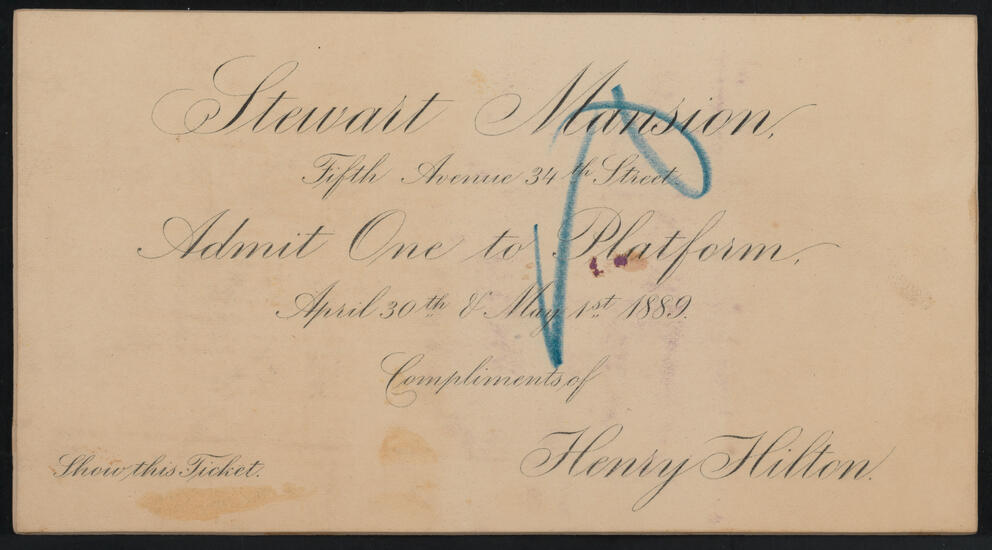 Stewart Mansion,
Fifth Avenue 34th Street.
Admit One to Platform,
April 30th & May 1st 1889.
Compliments of
Henry Hilton.
Show this Ticket.